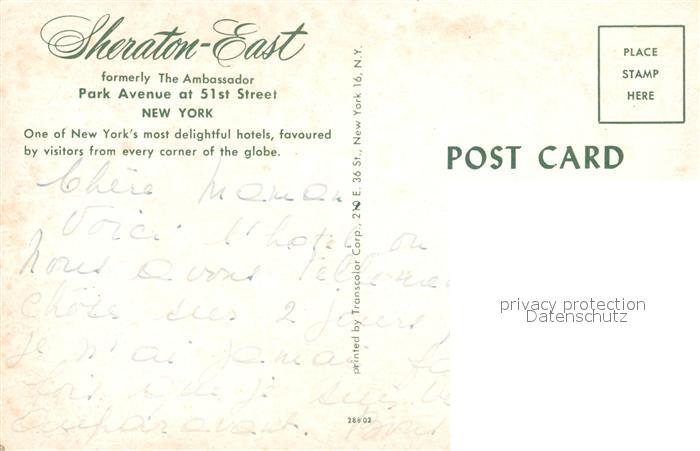 Sheraton-East
formerly The Ambassador
Park Avenue at 51st Street
NEW YORK
One of New York's most delightful hotels, favoured
by visitors from every corner of the globe.
Chère Maman,
Voici l'hotel ou
nous avons
chose sur 2 jours
je n'ai jamais
fois que je suis
auparavant.
printed by Transcolor Corp., E. 36 St., New York 16, N.Y.
28802
PLACE
STAMP
HERE
POST CARD
privacy protection
Datenschutz